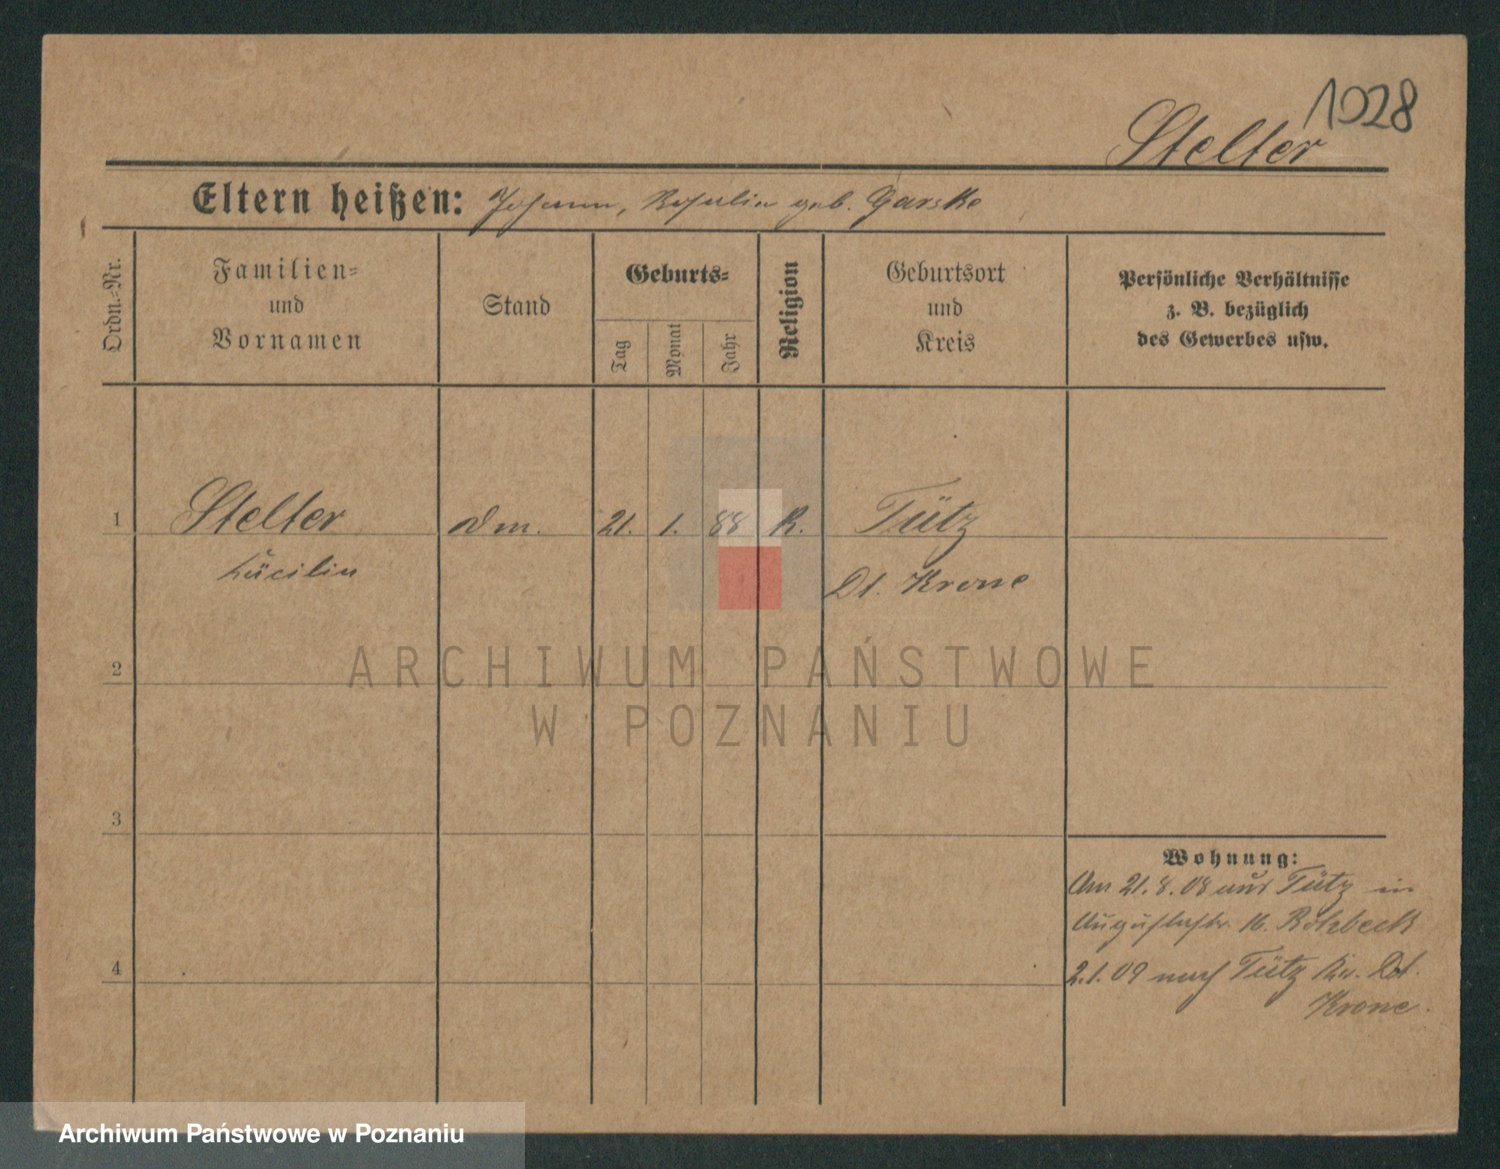 1028
Stelter
Eltern heißen: Johann, Rosalia geb. Garske
Ordn.-Nr.
Familien-
und
Vornamen
Stand
Geburts-
Tag
Monat
Jahr
Religion
Geburtsort
und
Kreis
Persönliche Verhältnisse
z. B. bezüglich
des Gewerbes usw.
1 Stelter Dm. 21. 1. 88 K. Tütz
Cäcilia Dt. Krone
2
3
4
Wohnung:
Am 21.8.08 aus Tütz in
Augustastr. 16.
2.1.09 nach Tütz Kr. Dt.
Krone.
ARCHIWUM PAŃSTWOWE
W POZNANIU
Archiwum Państwowe w Poznaniu